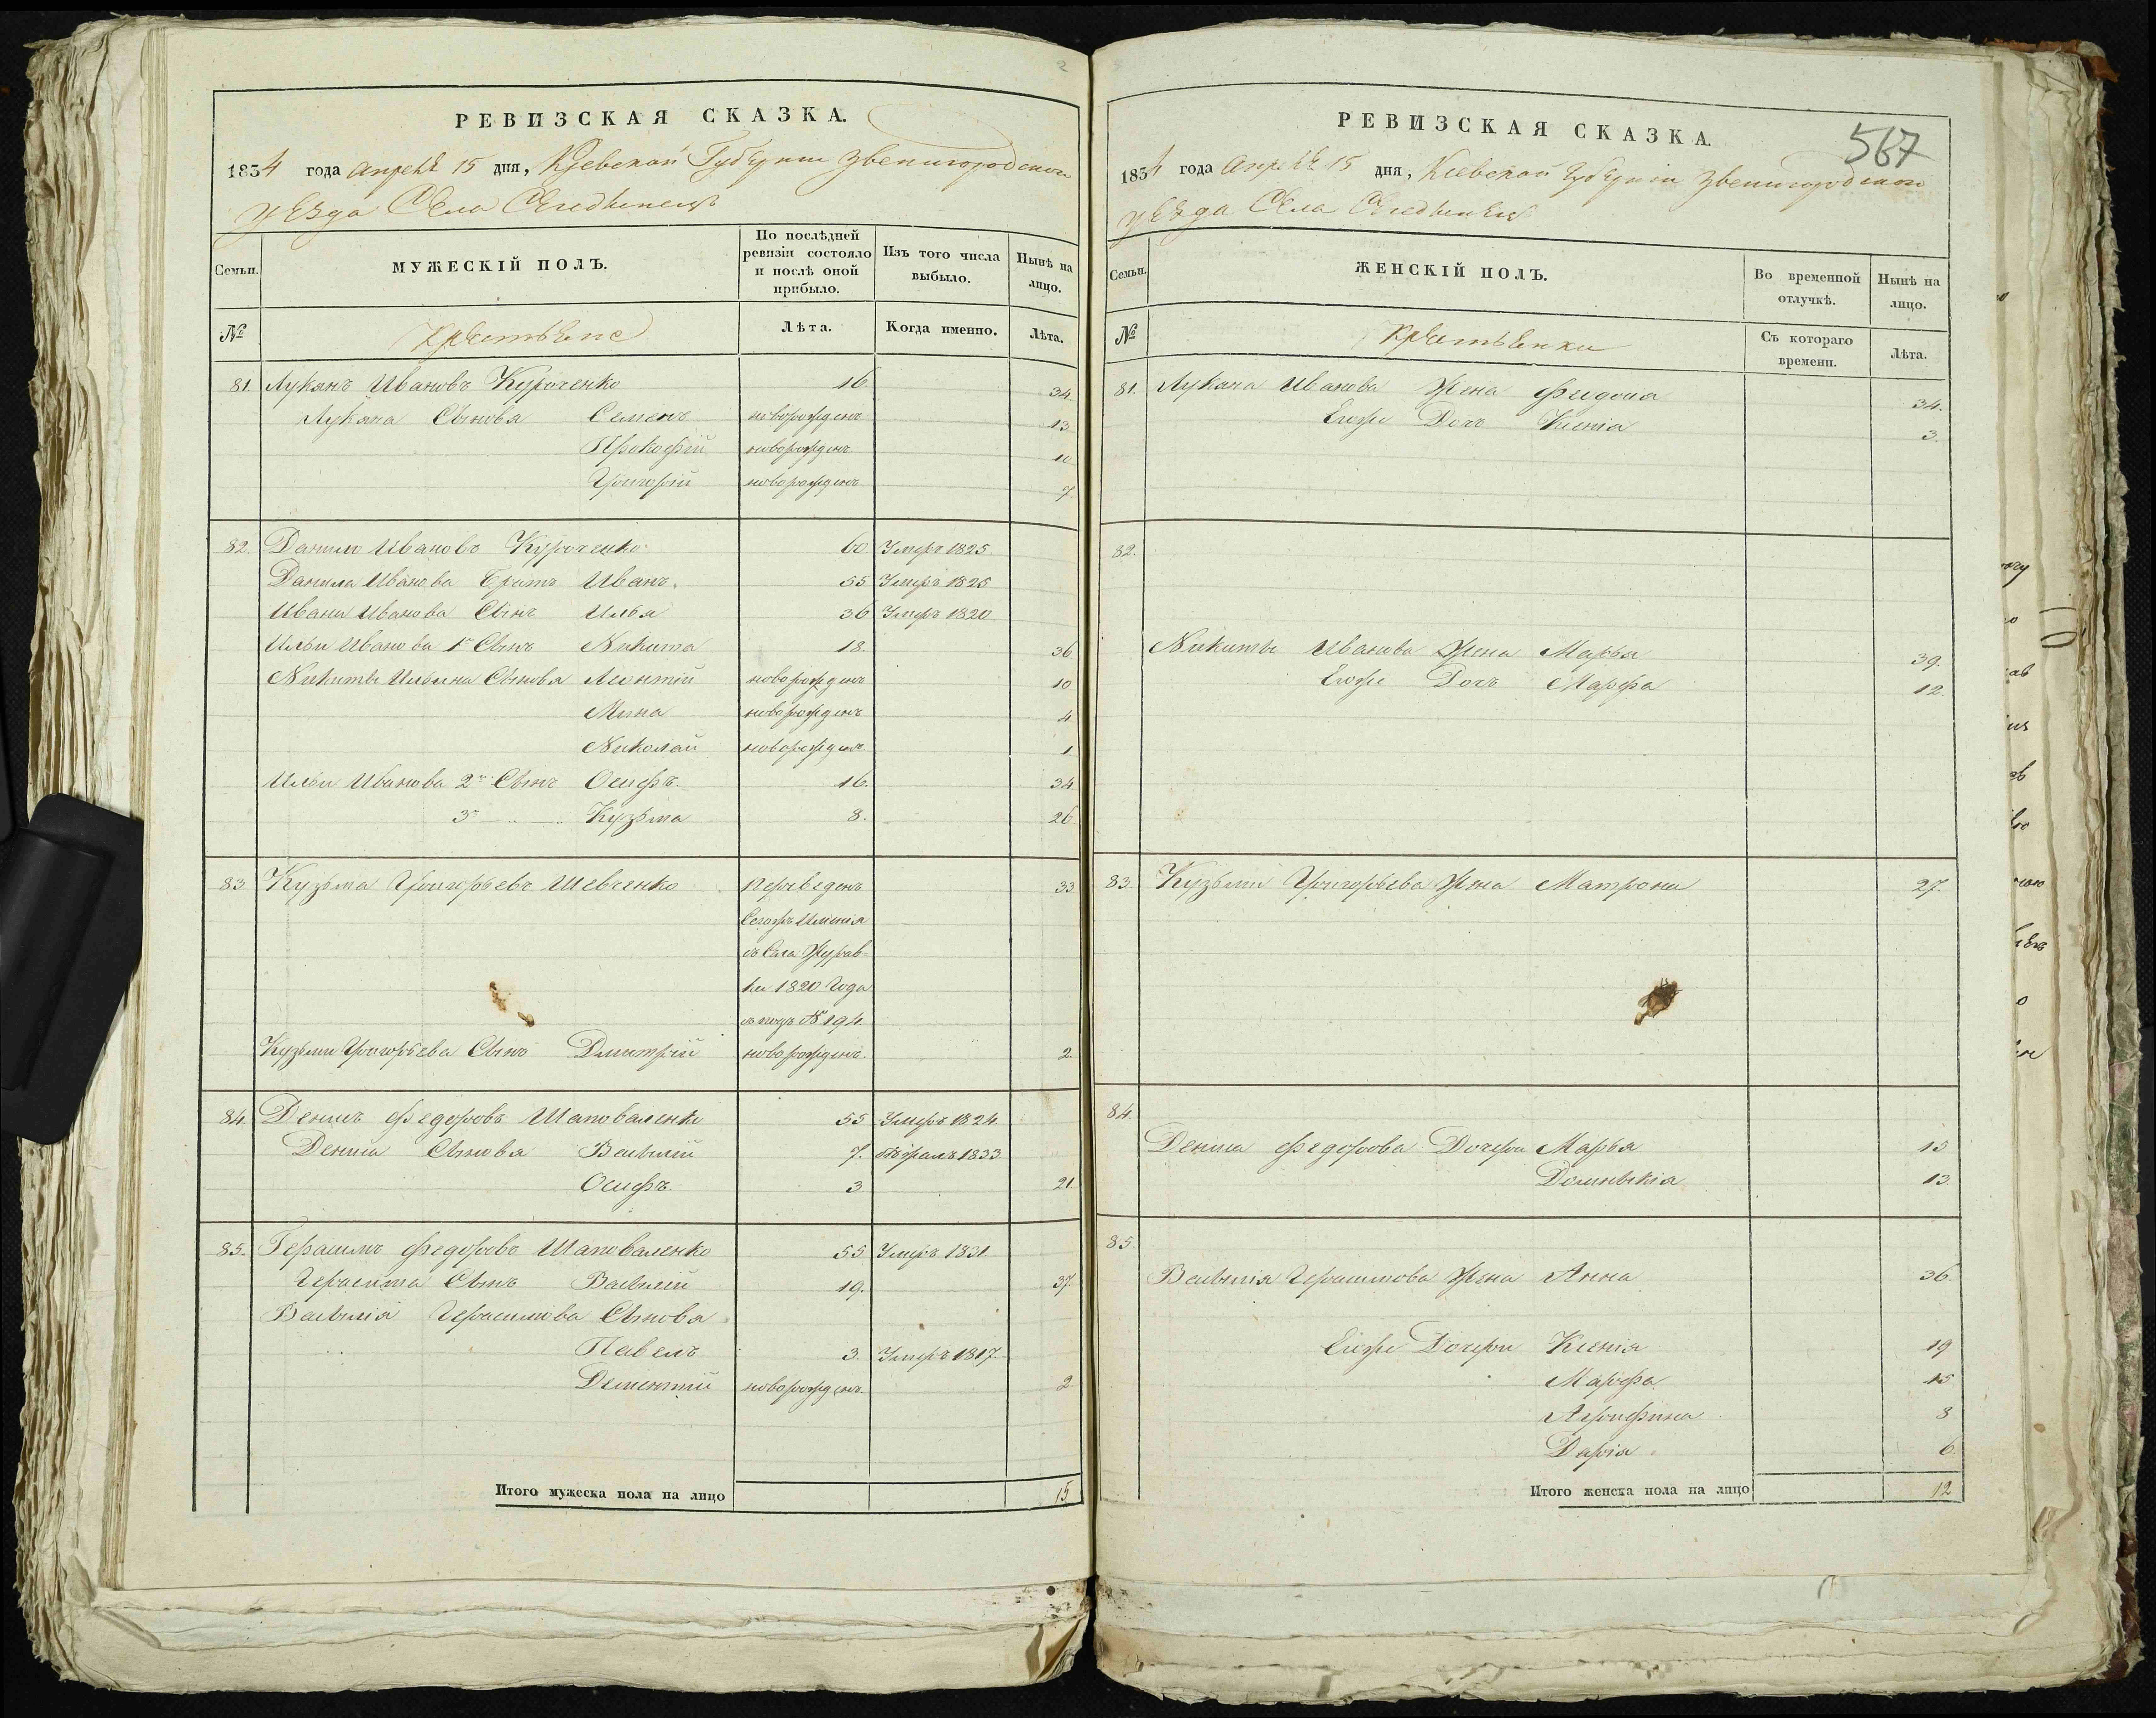 РЕВИЗСКАЯ СКАЗКА.
1834 года Апреля 15 дня, Кіевской Губерніи Звенигородского
уезда Села
Семьи.
МУЖЕСКІЙ ПОЛЪ.
По послѣдней ревизіи состояло и послѣ оной прибыло.
Изъ того числа выбыло.
Нынѣ на лицо.
№
Крестьяне
Лѣта.
Когда именно.
Лѣта.
81. Лукянъ Ивановъ Куроченко 16. 34.
Лукяна Сыновья Семенъ новорожденъ 13
Прокофій новорожденъ 10
Григорій новорожденъ 7
82. Данило Ивановъ Куроченко 60 Умеръ 1825.
Данила Иванова Братъ Иванъ. 55 Умеръ 1825
Ивана Иванова Сынъ Илья 36 Умеръ 1820
Ильи Иванова 1й Сынъ Никита 18. 36
Никиты Ильина Сыновья Леонтій новорожденъ 10
Мина новорожденъ 4
Николай новорожденъ 1
Ильи Иванова 2й Сынъ Осифъ. 16. 34
3й Кузьма 8. 26.
83. Кузьма Григорьевъ Шевченко переведенъ 33
Сегожъ Имѣнія
съ Села Журав
ки 1820 Года
съ подъ № 194.
Кузьмы Григорьева Сынъ Дмитрій новорожденъ. 2.
84. Денисъ Федоровъ Шаповаленко 55 Умеръ 1824.
Дениса Сыновья Василій 7. 1833
Осифъ. 3 21
85. Герасимъ Федоровъ Шаповаленко 55 Умеръ 1831.
Герасима Сынъ Василій 19. 37.
Василія Герасимова Сыновья
Павелъ 3. Умеръ 1817.
Дементій новорожденъ 2.
Итого мужеска пола на лицо 15
РЕВИЗСКАЯ СКАЗКА.
567
1834 года Апреля 15 дня, Кіевской Губерніи Звенигородского
уезда Села
Семьи.
ЖЕНСКІЙ ПОЛЪ.
Во временной отлучкѣ.
Нынѣ на лицо.
№
Крестьянки
Съ котораго времени.
Лѣта.
81. Лукяна Иванова Жена 34.
Егоже Дочь Ксенія 3.
82.
Никиты Иванова Жена Марья 39.
Егоже Дочь Марфа 12.
83. Кузьмы Григорьева Жена Матрона 27.
84.
Дениса Федорова Дочери Марья 15
Домникія 13.
85.
Василія Герасимова Жена Анна 36.
Егоже Дочери Ксенія 19
Марфа 15
Агрифина 8
Дарія 6.
Итого женска пола на лицо 12